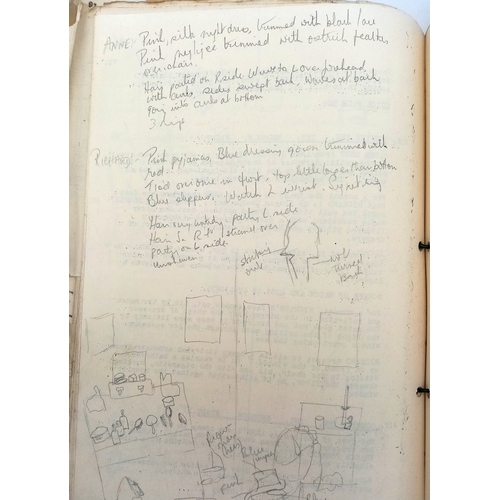 ANNE - Pink silk nightdress, trimmed with black lace
Pink negligee trimmed with ostrich feather
over chair.
Hair parted on R side Waves to L over forehead
with curls sides swept back, Waves at back
going into curls at bottom
3 rings
RICHARD - Pink pyjamas, Blue dressing gown trimmed with
red.
Tied once in front, top little longer than bottom
Blue slippers, Watch L wrist, signet ring
Hair very untidy parting L side
Hair In R
parting on L side.
unshaven
not
turned
Back
pink